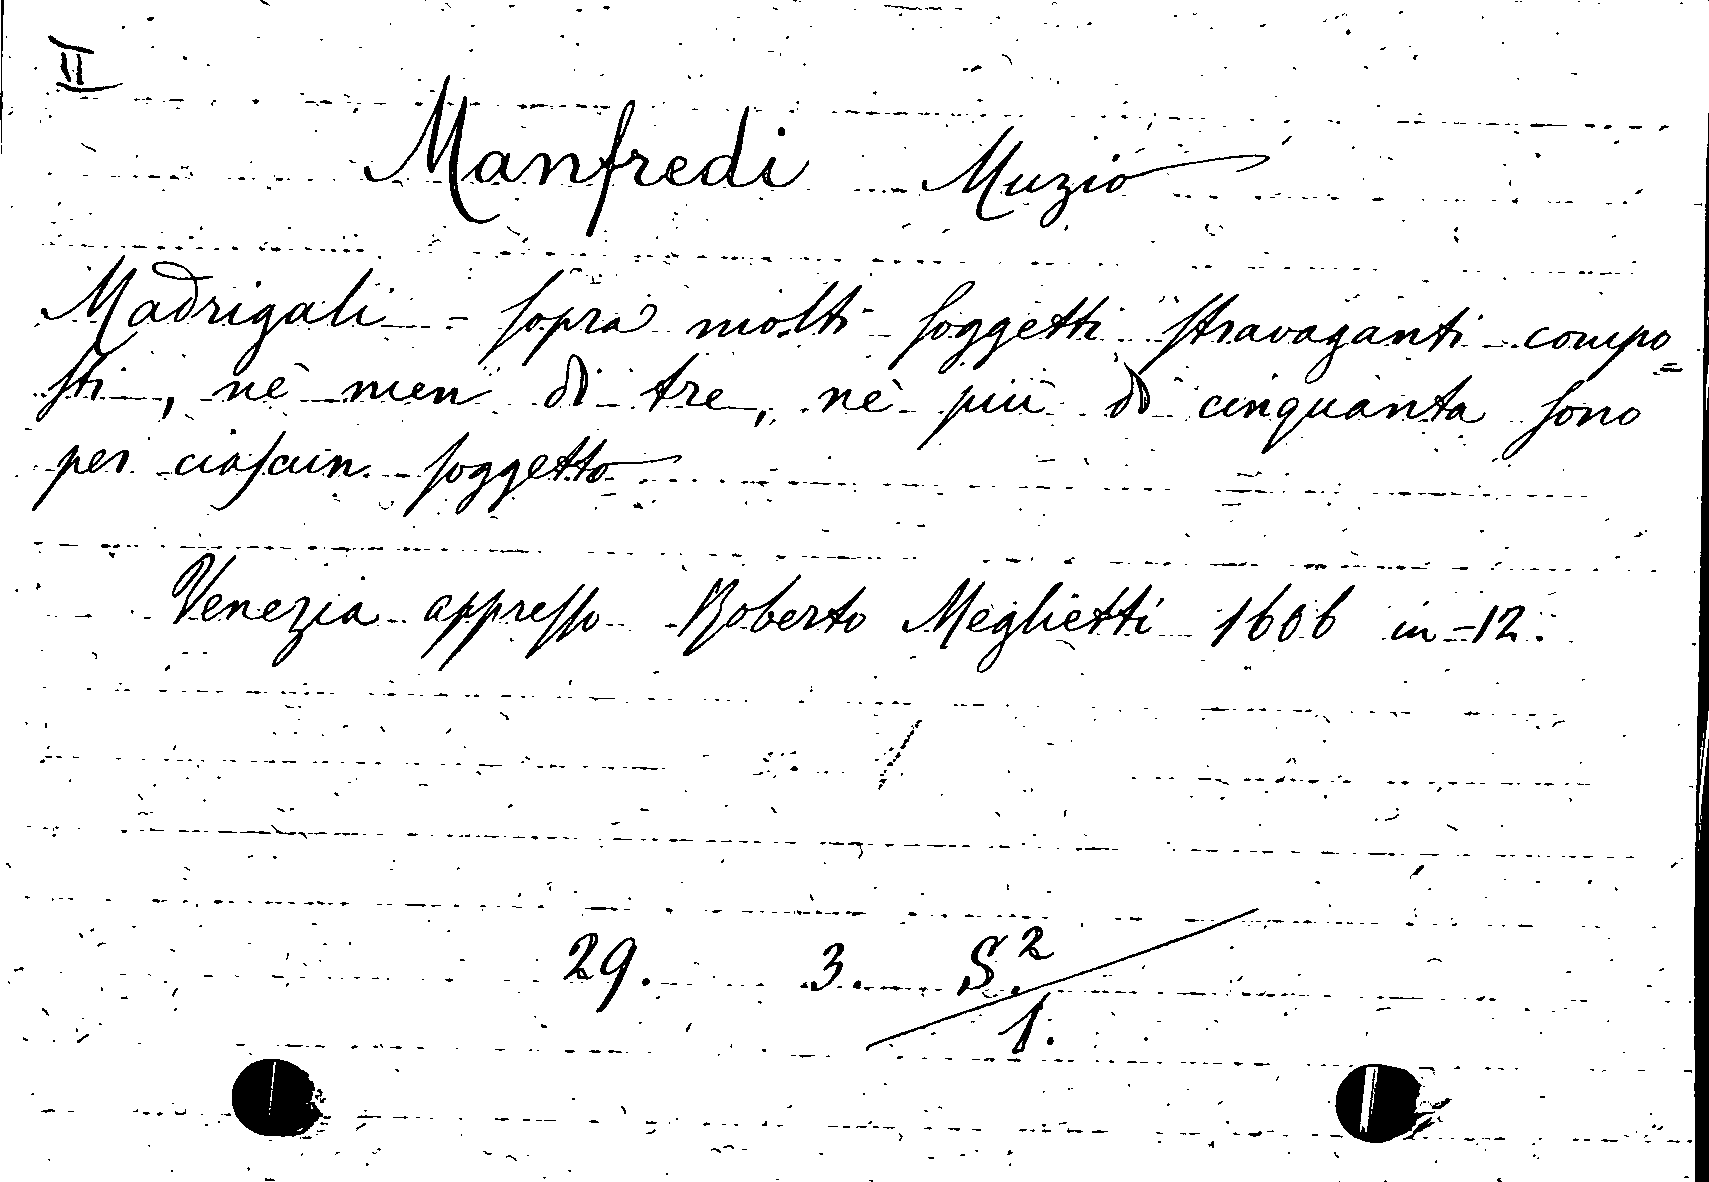 II
Manfredi Muzio
Madrigali - sopra molti soggetti stravaganti compo=
sti, nè men di tre, nè più di cinquanta sono
per ciascun soggetto
Venezia appresso Roberto Meglietti 1606 in-12.
29. 3. S.²
1.